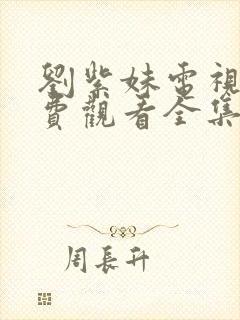 劉紫妹電視
費觀看全集
周長升